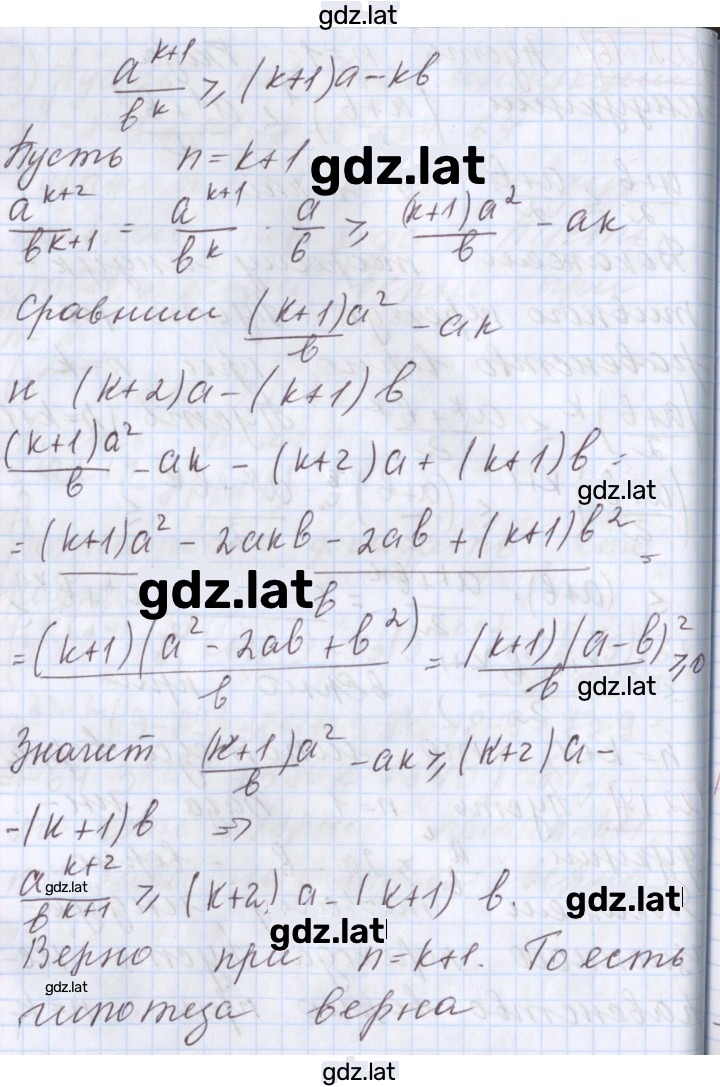 gdz.lat
a^{k+1}/b^k ⩾ (k+1)a-kb
Пусть n=k+1
gdz.lat
a^{k+2}/b^{k+1} = a^{k+1}/b^k · a/b ⩾ (k+1)a²/b - ak
Сравним (k+1)a²/b - ak
и (k+2)a-(k+1)b
(k+1)a²/b - ak - (k+2)a+(k+1)b =
gdz.lat
= (k+1)a² - 2akb - 2ab + (k+1)b²/b =
gdz.lat
= (k+1)(a² - 2ab + b²)/b = (k+1)(a-b)²/b ⩾ 0
gdz.lat
Значит (k+1)a²/b - ak ⩾ (k+2)a -
-(k+1)b ⇒
a^{k+2}/b^{k+1} ⩾ (k+2)a-(k+1)b.
gdz.lat
gdz.lat
gdz.lat
Верно при n=k+1. То есть
gdz.lat
гипотеза верна
gdz.lat